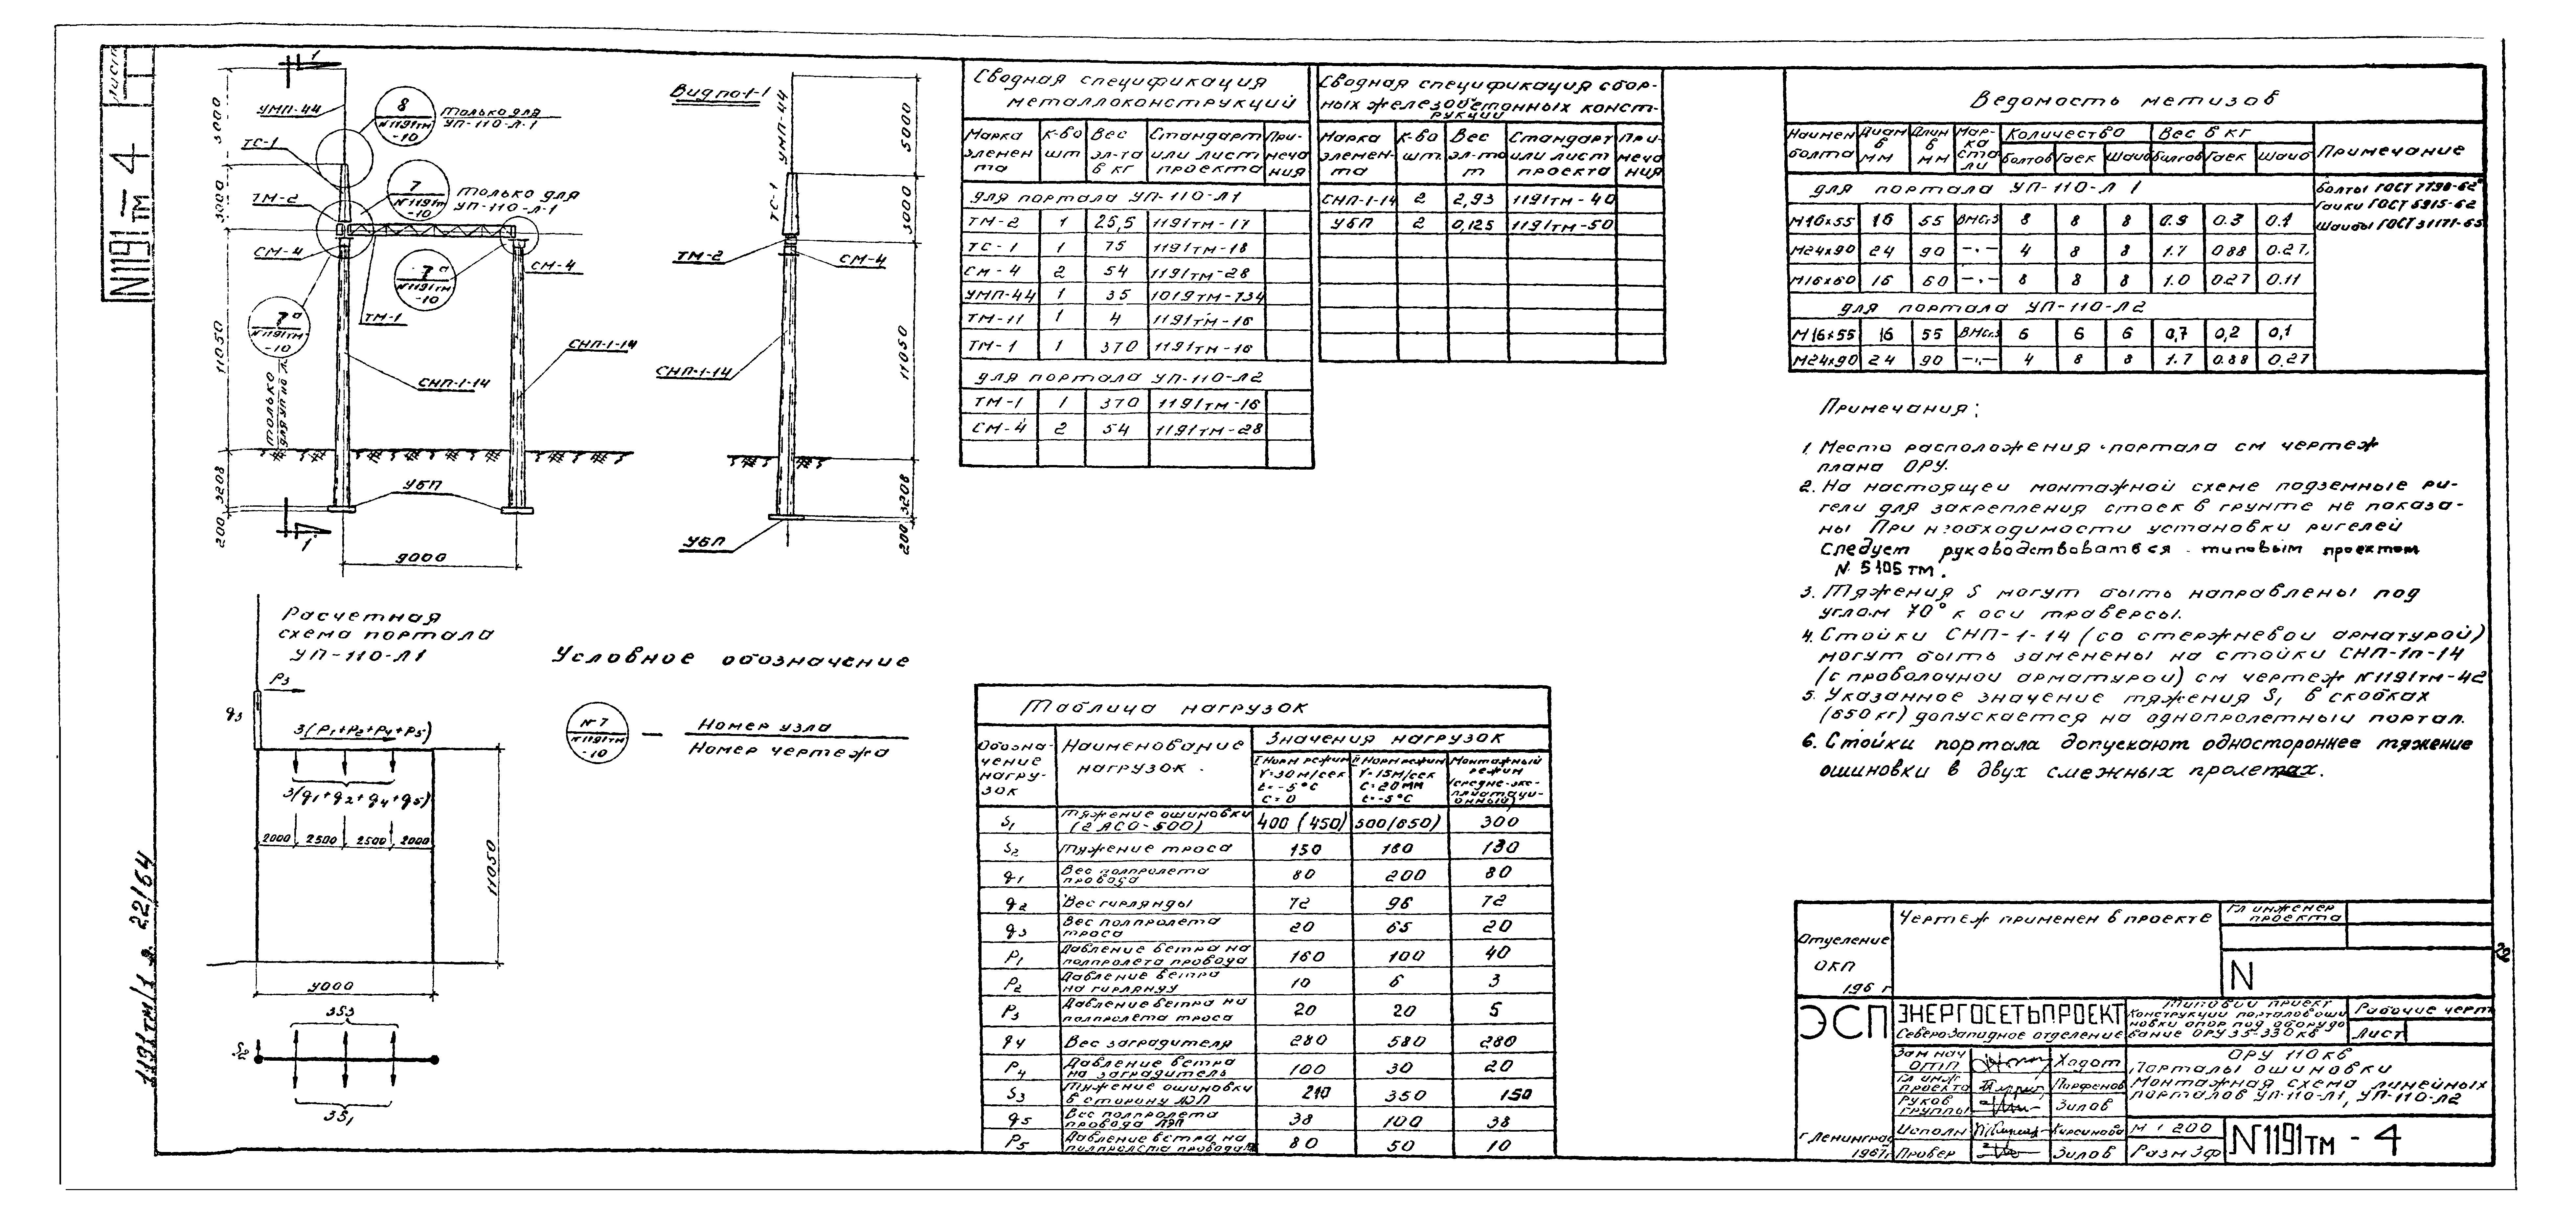 Лист
N1191тм-4
1191тм/1 л. 22/64
1
УМП-44
ТС-1
ТМ-2
СМ-4
8
N1191тм
-10
только для
УП-110-Л-1
7
N1191тм
-10
только для
УП-110-Л-1
7а
N1191тм
-10
СМ-4
7а
N1191тм
-10
ТМ-1
СНП-1-14
СНП-1-14
только
УБП
5000
3000
11050
3208
200
9000
1
Вид по 1-1
УМП-44
ТС-1
ТМ-2
СМ-4
СНП-1-14
УБП
5000
3000
11050
3208
200
Расчетная
схема портала
УП-110-Л1
P3
q3
3(P1+P2+P4+P5)
3(q1+q2+q4+q5)
2000 2500 2500 2000
11050
9000
3S3
S2
3S1
Условное обозначение
N7
N1191тм
-10
— Номер узла
Номер чертежа
Сводная спецификация
металлоконструкций
Марка элемента К-во шт Вес эл-та в кг Стандарт или лист проекта Примечания
для портала УП-110-Л1
ТМ-2 1 25,5 1191тм-17
ТС-1 1 75 1191тм-18
СМ-4 2 54 1191тм-28
УМП-44 1 35 1019тм-734
ТМ-11 1 4 1191тм-16
ТМ-1 1 370 1191тм-16
для портала УП-110-Л2
ТМ-1 1 370 1191тм-16
СМ-4 2 54 1191тм-28
Сводная спецификация сбор-
ных железобетонных конст-
рукций
Марка элемента К-во шт. Вес эл-та т Стандарт или лист проекта Примечания
СНП-1-14 2 2,93 1191тм-40
УБП 2 0,125 1191тм-50
Ведомость метизов
Наимен болта Диам в мм Длин в мм Марка стали Количество Вес в кг Примечание
Болтов Гаек Шайб Болтов Гаек Шайб
для портала УП-110-Л1
М16х55 16 55 ВМСт.3 8 8 8 0.9 0.3 0.1
М24х90 24 90 —·— 4 8 8 1.7 0.88 0.27.
М16х60 16 60 —·— 8 8 8 1.0 0.27 0.11
для портала УП-110-Л2
М16х55 16 55 ВМСт.3 6 6 6 0,7 0,2 0,1
М24х90 24 90 —·— 4 8 8 1.7 0.88 0.27
Болты ГОСТ 7798-62
Гайки ГОСТ 5915-62
Шайбы ГОСТ 11371-65
Примечания:
1. Место расположения портала см чертеж
плана ОРУ.
2. На настоящей монтажной схеме подземные ри-
гели для закрепления стоек в грунте не показа-
ны При необходимости установки ригелей
следует руководствоваться типовым проектом
N 5105тм.
3. Тяжения S могут быть направлены под
углом 70° к оси траверсы.
4. Стойки СНП-1-14 (со стержневой арматурой)
могут быть заменены на стойки СНП-1п-14
(с проволочной арматурой) см чертеж N1191тм-42
5. Указанное значение тяжения S1 в скобках
(650кг) допускается на однопролетный портал.
6. Стойки портала допускают одностороннее тяжение
ошиновки в двух смежных пролетах.
Таблица нагрузок
Обозначение нагрузок Наименование нагрузок. Значения нагрузок
I Норм режим V=30м/сек t=-5°C C=0
II Норм режим V=15м/сек C=20мм t=-5°C
Монтажный режим (средне-эксплуатационный)
S1 Тяжение ошиновки (2 АСО-500) 400 (450) 500(650) 300
S2 Тяжение троса 150 180 130
q1 Вес полпролета провода 80 200 80
q2 Вес гирлянды 72 96 72
q3 Вес полпролета троса 20 65 20
P1 Давление ветра на полпролета провода 160 100 40
P2 Давление ветра на гирлянду 10 6 3
P3 Давление ветра на полпролета троса 20 20 5
q4 Вес заградителя 280 580 280
P4 Давление ветра на заградитель 100 30 20
S3 Тяжение ошиновки в сторону ЛЭП 210 350 150
q5 Вес полпролета провода ЛЭП 38 100 38
P5 Давление ветра на полпролета провода 80 50 10
Отделение
ОКП
196 г
Чертеж применен в проекте
Гл инженер
проекта
N
ЭСП
ЭНЕРГОСЕТЬПРОЕКТ
Северо-Западное отделение
Типовой проект
Конструкции порталов оши
новки опор под оборудо
вание ОРУ 35-330кв
Рабочие черт
Лист
Зам нач ОТП Ходот
Гл инж проекта Парфенов
Руков группы Зилов
Исполн Кирсанова
Провер Зилов
ОРУ 110кв
Порталы ошиновки
Монтажная схема линейных
порталов УП-110-Л1, УП-110-Л2
г Ленинград
1967г.
М 1:200
Разм 3ф
N1191тм-4